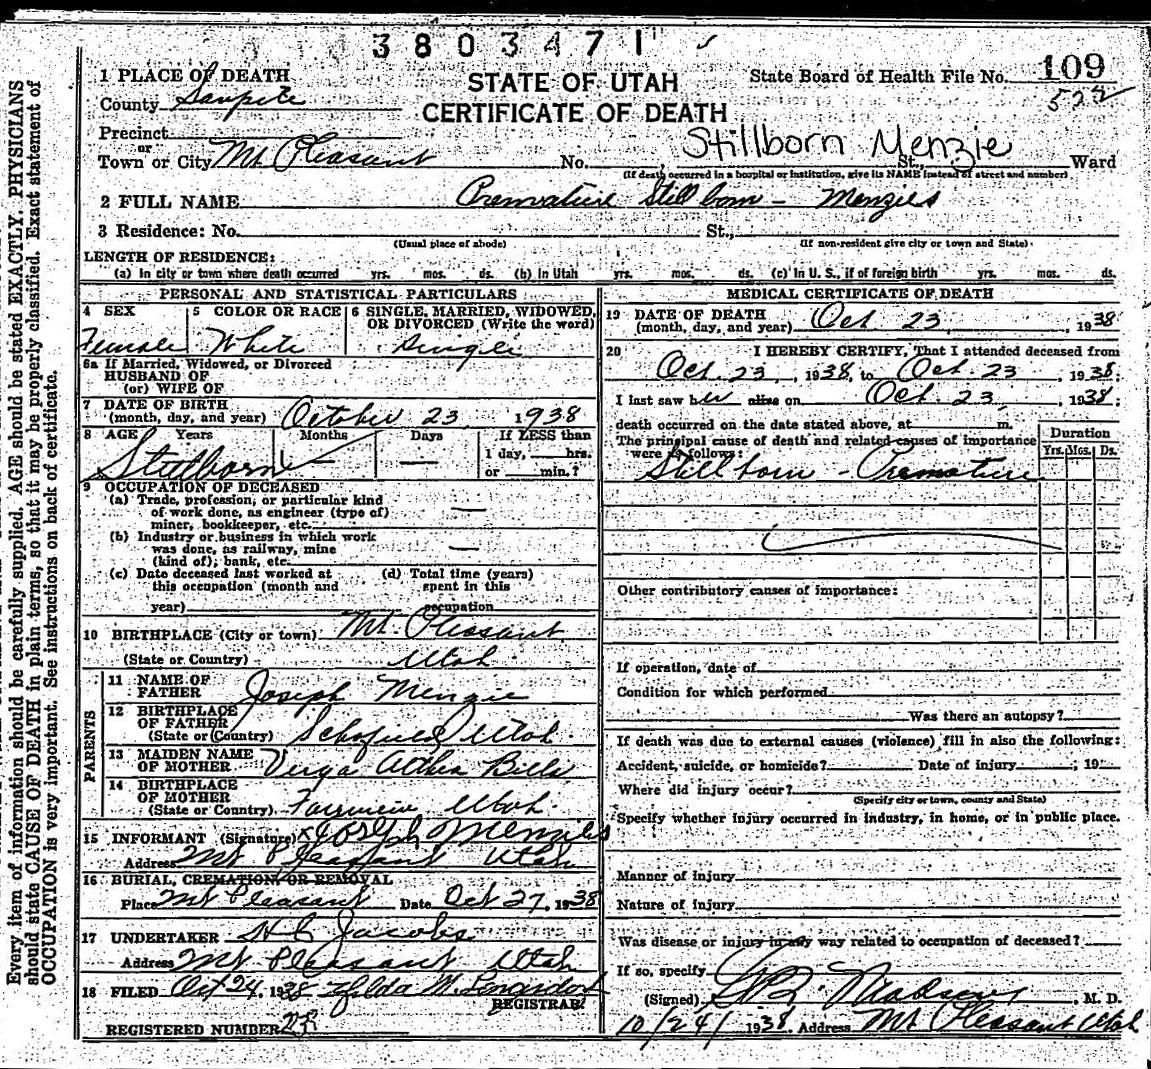 3803471
1 PLACE OF DEATH
County Sanpete
STATE OF UTAH
CERTIFICATE OF DEATH
State Board of Health File No. 109
522
Precinct
or
Town or City Mt Pleasant No. , Stillborn Menzie St., Ward
(If death occurred in a hospital or institution, give its NAME instead of street and number)
2 FULL NAME Premature Stillborn - Menzies
3 Residence: No. St.,
(Usual place of abode) (If non-resident give city or town and State)
LENGTH OF RESIDENCE:
(a) In city or town where death occurred yrs. mos. ds. (b) In Utah yrs. mos. ds. (c) In U. S., if of foreign birth yrs. mos. ds.
PERSONAL AND STATISTICAL PARTICULARS
4 SEX 5 COLOR OR RACE 6 SINGLE, MARRIED, WIDOWED, OR DIVORCED (Write the word)
Female White Single
6a If Married, Widowed, or Divorced
HUSBAND OF
(or) WIFE OF
7 DATE OF BIRTH
(month, day, and year) October 23 1938
8 AGE Years Months Days If LESS than
1 day, hrs.
or min.?
Stillborn —
9 OCCUPATION OF DECEASED
(a) Trade, profession, or particular kind
of work done, as engineer (type of) —
miner, bookkeeper, etc.
(b) Industry or business in which work
was done, as railway, mine —
(kind of); bank, etc.
(c) Date deceased last worked at (d) Total time (years)
this occupation (month and spent in this
year) occupation
10 BIRTHPLACE (City or town) Mt. Pleasant
(State or Country) Utah
PARENTS
11 NAME OF
FATHER Joseph Menzie
12 BIRTHPLACE
OF FATHER
(State or Country) Schofield Utah
13 MAIDEN NAME
OF MOTHER Verga Bills
14 BIRTHPLACE
OF MOTHER
(State or Country) Fairview Utah
15 INFORMANT (Signature) x Joseph Menzies
Address Mt Pleasant Utah
16 BURIAL, CREMATION OR REMOVAL
Place Mt Pleasant Date Oct 27, 1938
17 UNDERTAKER Jacobs
Address Mt Pleasant Utah
18 FILED Oct 24, 1938 Hilda M.
REGISTRAR
REGISTERED NUMBER
MEDICAL CERTIFICATE OF DEATH
19 DATE OF DEATH
(month, day, and year) Oct 23, 1938
20 I HEREBY CERTIFY, That I attended deceased from
Oct. 23, 1938, to Oct. 23, 1938.
I last saw her alive on Oct. 23, 1938;
death occurred on the date stated above, at m.
The principal cause of death and related causes of importance
were as follows:
Duration
Yrs. Mos. Ds.
Stillborn - Premature
Other contributory causes of importance:
If operation, date of
Condition for which performed
Was there an autopsy?
If death was due to external causes (violence) fill in also the following:
Accident, suicide, or homicide? Date of injury ; 19
Where did injury occur?
(Specify city or town, county and State)
Specify whether injury occurred in industry, in home, or in public place.
Manner of injury
Nature of injury
Was disease or injury in any way related to occupation of deceased?
If so, specify
(Signed) Madsen, M. D.
10/24/1938. Address Mt Pleasant Utah
Every item of information should be carefully supplied. AGE should be stated EXACTLY. PHYSICIANS
should state CAUSE OF DEATH in plain terms, so that it may be properly classified. Exact statement of
OCCUPATION is very important. See instructions on back of certificate.